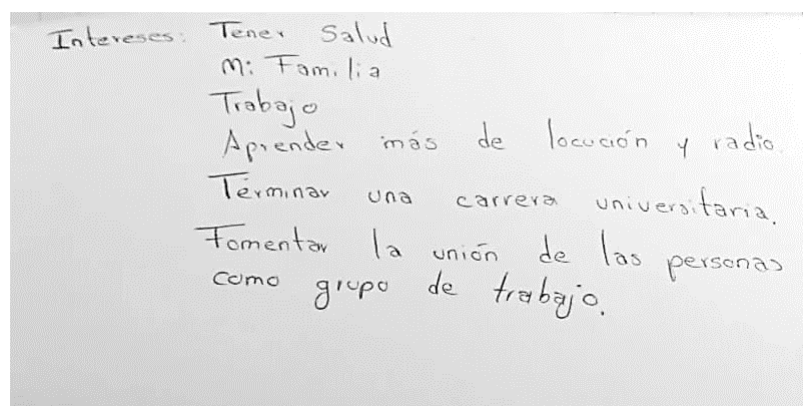 Intereses: Tener Salud
Mi Familia
Trabajo
Aprender más de locución y radio.
Términar una carrera universitaria.
Fomentar la unión de las personas
como grupo de trabajo.